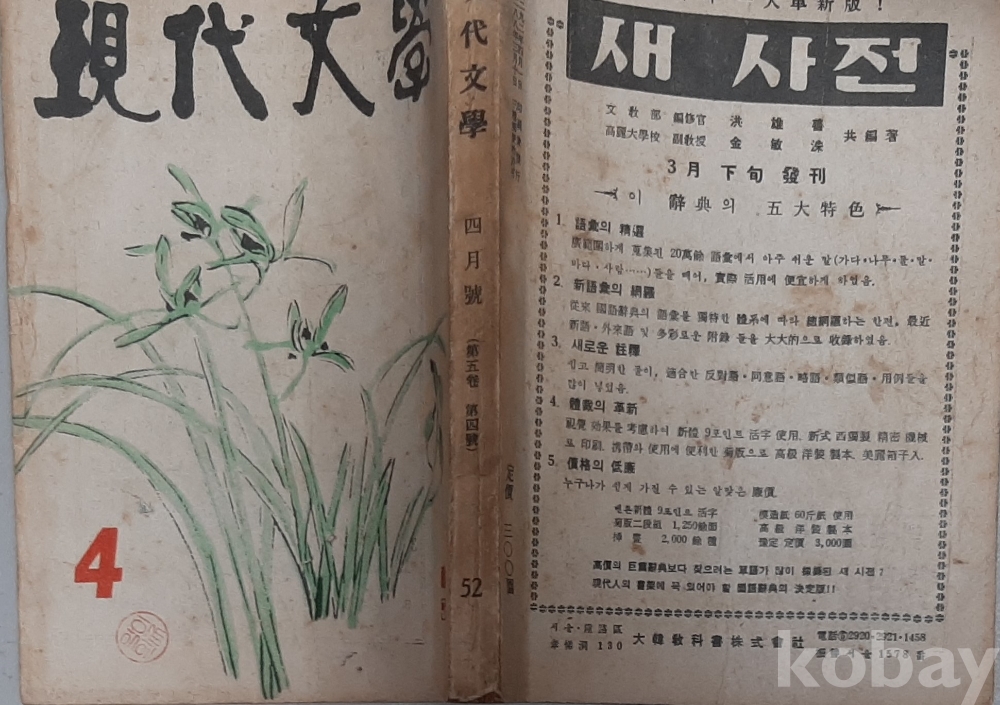 現代文學
4
代文學
四月號
(第五卷 第四號)
52
定價 三〇〇圜
새 사전
文敎部 編修官 洪雄善
高麗大學校 副敎授 金敏洙 共編著
3月 下旬 發刊
이 辭典의 五大特色
1. 語彙의 精選
廣範圍하게 蒐集된 20萬餘 語彙에서 아주 쉬운 말(가다・나무・물・발・
바다・사람……)들을 빼어, 實際 活用에 便宜하게 하였음.
2. 新語彙의 網羅
從來 國語辭典의 語彙를 獨特한 體系에 따라 總網羅하는 한편, 最近
新語・外來語 및 多彩로운 附錄 들을 大大的으로 收錄하였음.
3. 새로운 註釋
쉽고 簡明한 풀이, 適合한 反對語・同意語・略語・類似語・用例들을
많이 넣었음.
4. 體裁의 革新
視覺 効果를 考慮하여 新體 9포인트 活字 使用. 新式 西獨製 精密 機械
로 印刷. 携帶와 使用에 便利한 菊版으로 高級 洋裝 製本. 美麗箱子入.
5. 價格의 低廉
누구나가 쉽게 가질 수 있는 알맞은 廉價
벤톤新體 9포인트 活字 模造紙 60斤紙 使用
菊版二段組 1,250餘面 高級 洋裝 製本
揷畫 2,000餘 個 豫定 定價 3,000圜
高價의 巨量辭典보다 찾으려는 單語가 많이 收錄된 새 사전?
現代人의 書架에 꼭 있어야 할 國語辭典의 決定版!!
서울・鐘路區
孝悌洞 130 大韓敎科書株式會社
電話⑤2920・2921・1458
서울 1573
kobay